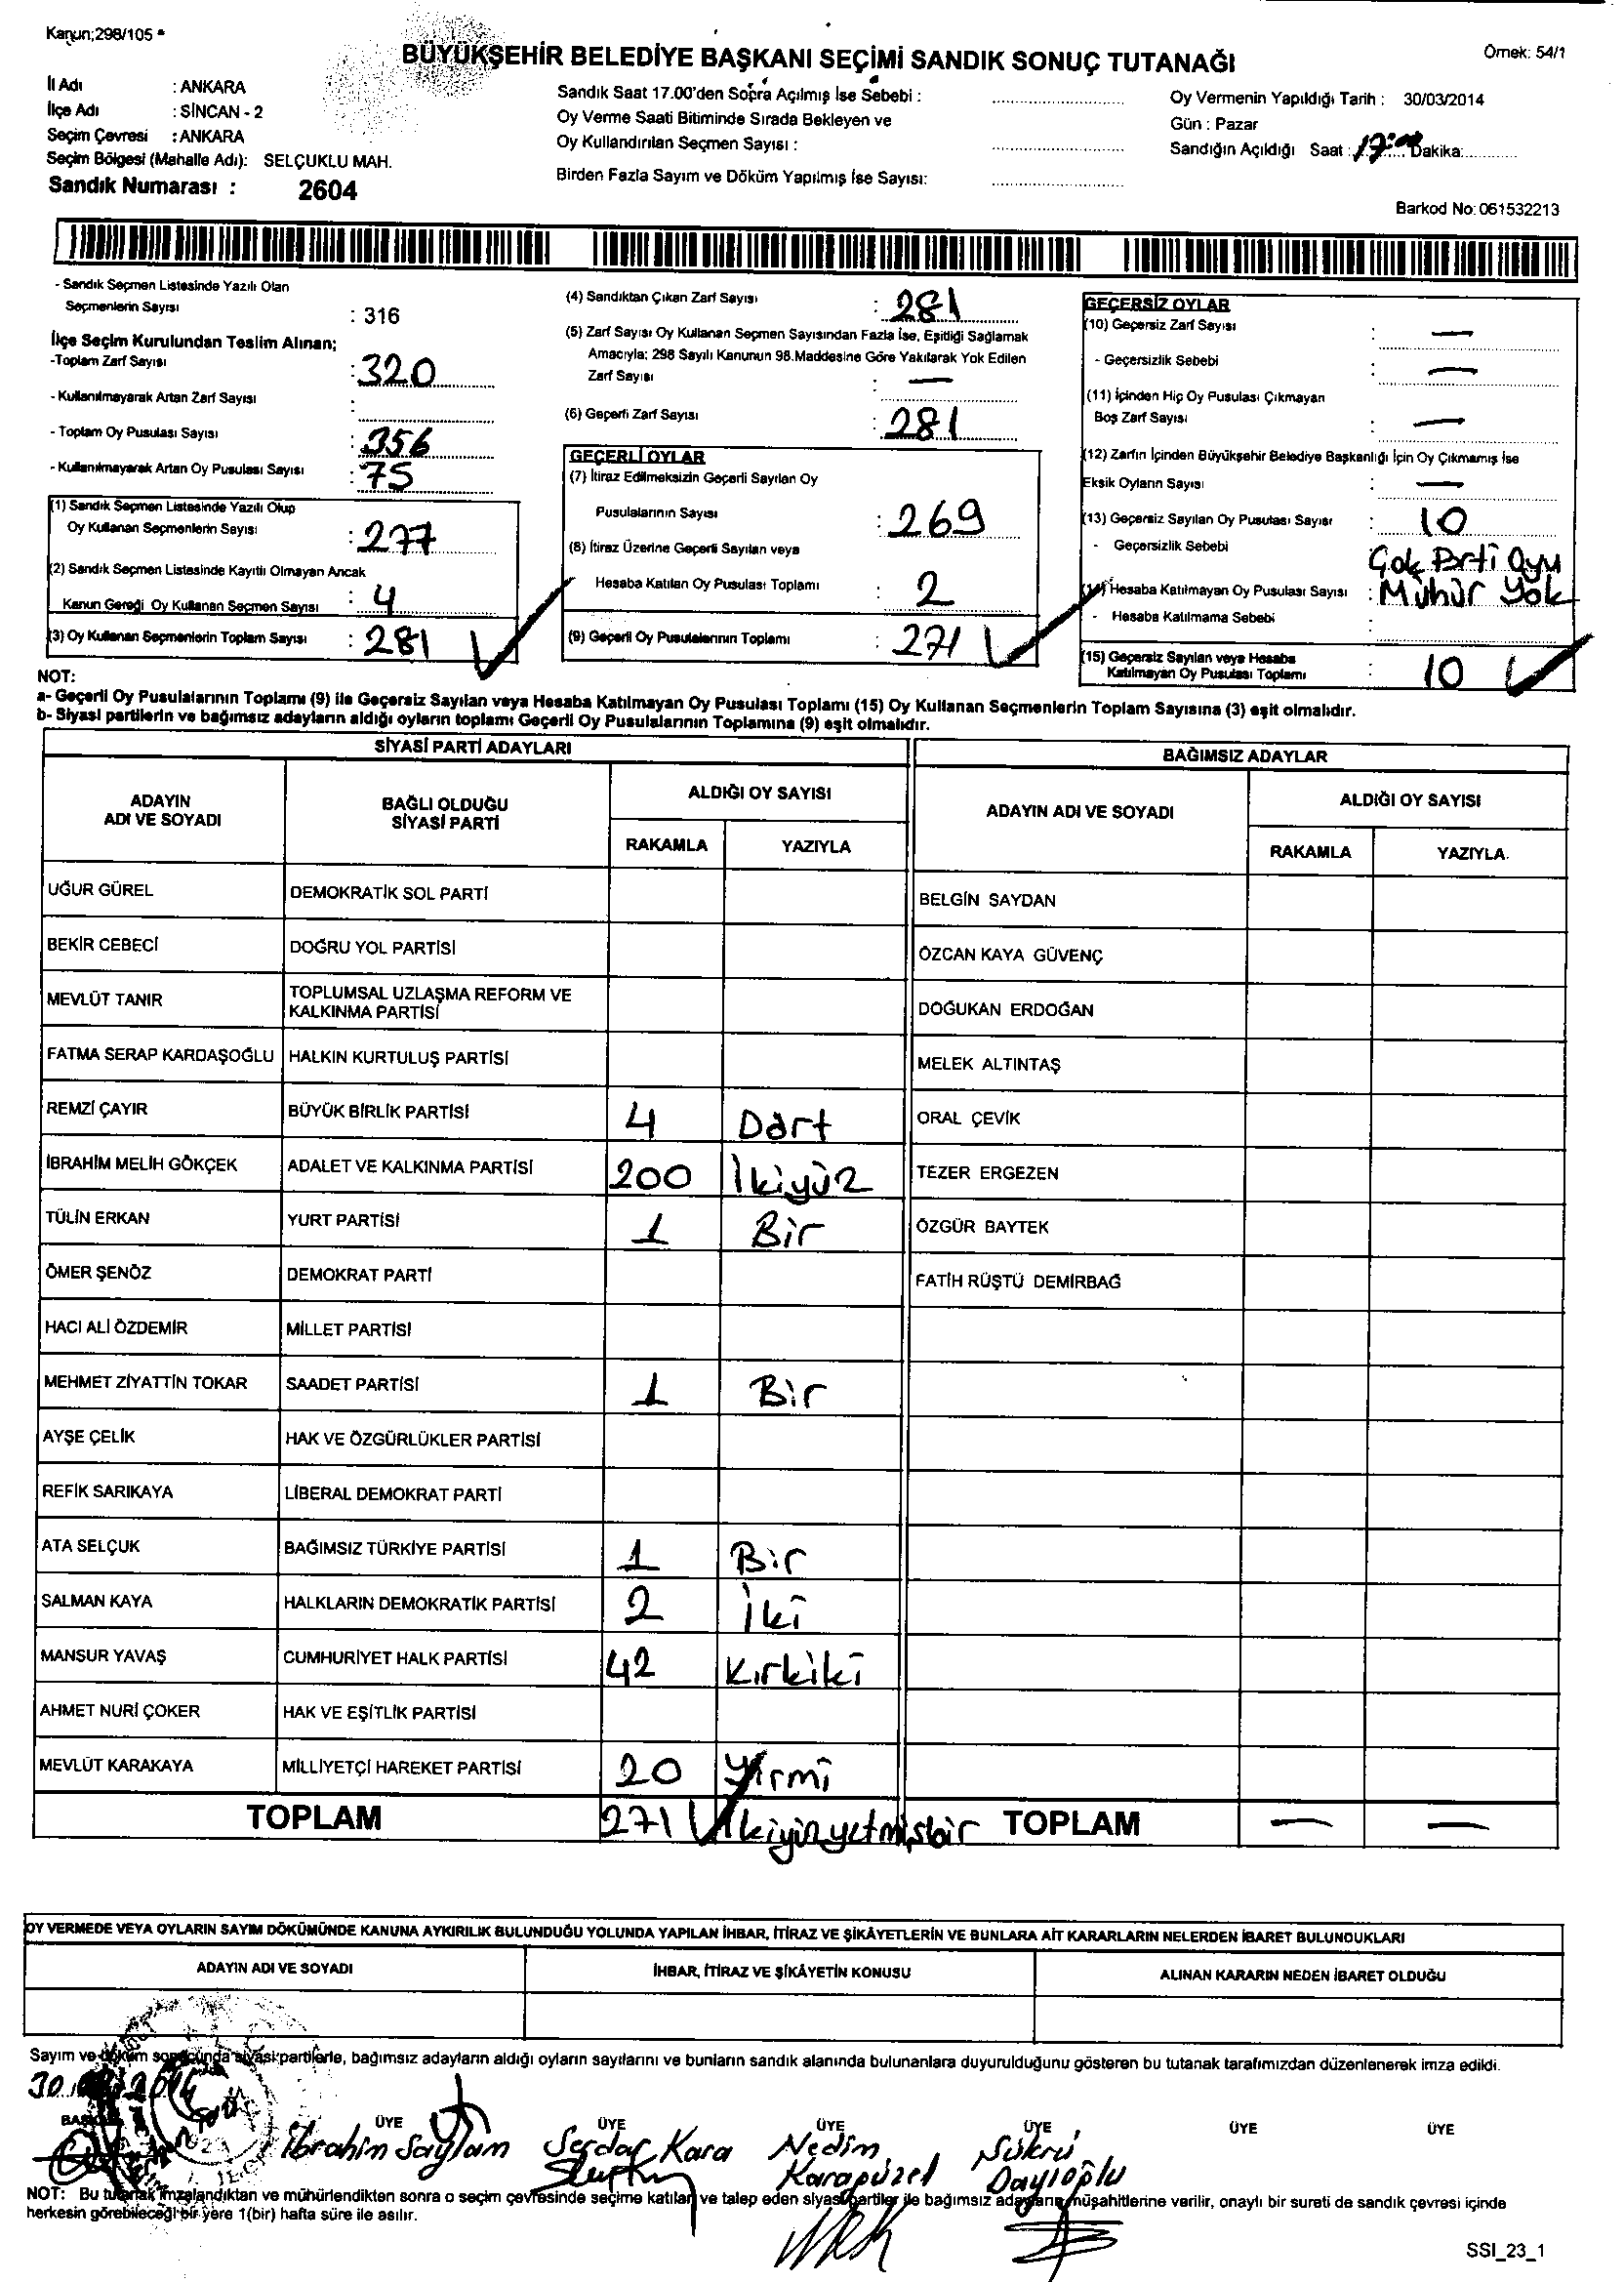 Kanun;298/105 *
BÜYÜKŞEHİR BELEDİYE BAŞKANI SEÇİMİ SANDIK SONUÇ TUTANAĞI
Örnek: 54/1
İl Adı : ANKARA
İlçe Adı : SİNCAN - 2
Seçim Çevresi : ANKARA
Seçim Bölgesi (Mahalle Adı): SELÇUKLU MAH.
Sandık Numarası : 2604
Sandık Saat 17.00'den Sonra Açılmış İse Sebebi :
Oy Verme Saati Bitiminde Sırada Bekleyen ve
Oy Kullandırılan Seçmen Sayısı :
Birden Fazla Sayım ve Döküm Yapılmış İse Sayısı:
Oy Vermenin Yapıldığı Tarih : 30/03/2014
Gün : Pazar
Sandığın Açıldığı Saat : 17:00 Dakika:
Barkod No: 061532213
- Sandık Seçmen Listesinde Yazılı Olan
Seçmenlerin Sayısı : 316
İlçe Seçim Kurulundan Teslim Alınan;
-Toplam Zarf Sayısı : 320
- Kullanılmayarak Artan Zarf Sayısı :
- Toplam Oy Pusulası Sayısı : 356
- Kullanılmayarak Artan Oy Pusulası Sayısı : 75
(1) Sandık Seçmen Listesinde Yazılı Olup
Oy Kullanan Seçmenlerin Sayısı : 277
(2) Sandık Seçmen Listesinde Kayıtlı Olmayan Ancak
Kanun Gereği Oy Kullanan Seçmen Sayısı : 4
(3) Oy Kullanan Seçmenlerin Toplam Sayısı : 281
(4) Sandıktan Çıkan Zarf Sayısı : 281
(5) Zarf Sayısı Oy Kullanan Seçmen Sayısından Fazla İse, Eşitliği Sağlamak
Amacıyla; 298 Sayılı Kanunun 98.Maddesine Göre Yakılarak Yok Edilen
Zarf Sayısı : —
(6) Geçerli Zarf Sayısı : 281
GEÇERLİ OYLAR
(7) İtiraz Edilmeksizin Geçerli Sayılan Oy
Pusulalarının Sayısı : 269
(8) İtiraz Üzerine Geçerli Sayılan veya
Hesaba Katılan Oy Pusulası Toplamı : 2
(9) Geçerli Oy Pusulalarının Toplamı : 271
GEÇERSİZ OYLAR
(10) Geçersiz Zarf Sayısı : —
- Geçersizlik Sebebi : —
(11) İçinden Hiç Oy Pusulası Çıkmayan
Boş Zarf Sayısı : —
(12) Zarfın İçinden Büyükşehir Belediye Başkanlığı İçin Oy Çıkmamış İse
Eksik Oyların Sayısı : —
(13) Geçersiz Sayılan Oy Pusulası Sayısı : 10
- Geçersizlik Sebebi Çok Prti Oyu
(14) Hesaba Katılmayan Oy Pusulası Sayısı : Mühür Yok
- Hesaba Katılmama Sebebi :
(15) Geçersiz Sayılan veya Hesaba
Katılmayan Oy Pusulası Toplamı : 10
NOT:
a- Geçerli Oy Pusulalarının Toplamı (9) ile Geçersiz Sayılan veya Hesaba Katılmayan Oy Pusulası Toplamı (15) Oy Kullanan Seçmenlerin Toplam Sayısına (3) eşit olmalıdır.
b- Siyasi partilerin ve bağımsız adayların aldığı oyların toplamı Geçerli Oy Pusulalarının Toplamına (9) eşit olmalıdır.
SİYASİ PARTİ ADAYLARI
BAĞIMSIZ ADAYLAR
ADAYIN
ADI VE SOYADI
BAĞLI OLDUĞU
SİYASİ PARTİ
ALDIĞI OY SAYISI
RAKAMLA YAZIYLA
ADAYIN ADI VE SOYADI
ALDIĞI OY SAYISI
RAKAMLA YAZIYLA.
UĞUR GÜREL DEMOKRATİK SOL PARTİ
BELGİN SAYDAN
BEKİR CEBECİ DOĞRU YOL PARTİSİ
ÖZCAN KAYA GÜVENÇ
MEVLÜT TANIR TOPLUMSAL UZLAŞMA REFORM VE
KALKINMA PARTİSİ
DOĞUKAN ERDOĞAN
FATMA SERAP KARDAŞOĞLU HALKIN KURTULUŞ PARTİSİ
MELEK ALTINTAŞ
REMZİ ÇAYIR BÜYÜK BİRLİK PARTİSİ 4 Dört
ORAL ÇEVİK
İBRAHİM MELİH GÖKÇEK ADALET VE KALKINMA PARTİSİ 200 İkiyüz
TEZER ERGEZEN
TÜLİN ERKAN YURT PARTİSİ 1 Bir
ÖZGÜR BAYTEK
ÖMER ŞENÖZ DEMOKRAT PARTİ
FATİH RÜŞTÜ DEMİRBAĞ
HACI ALİ ÖZDEMİR MİLLET PARTİSİ
MEHMET ZİYATTİN TOKAR SAADET PARTİSİ 1 Bir
AYŞE ÇELİK HAK VE ÖZGÜRLÜKLER PARTİSİ
REFİK SARIKAYA LİBERAL DEMOKRAT PARTİ
ATA SELÇUK BAĞIMSIZ TÜRKİYE PARTİSİ 1 Bir
SALMAN KAYA HALKLARIN DEMOKRATİK PARTİSİ 2 İki
MANSUR YAVAŞ CUMHURİYET HALK PARTİSİ 42 Kırkiki
AHMET NURİ ÇOKER HAK VE EŞİTLİK PARTİSİ
MEVLÜT KARAKAYA MİLLİYETÇİ HAREKET PARTİSİ 20 Yirmi
TOPLAM 271 İkiyüzyetmişbir TOPLAM — —
OY VERMEDE VEYA OYLARIN SAYIM DÖKÜMÜNDE KANUNA AYKIRILIK BULUNDUĞU YOLUNDA YAPILAN İHBAR, İTİRAZ VE ŞİKÂYETLERİN VE BUNLARA AİT KARARLARIN NELERDEN İBARET BULUNDUKLARI
ADAYIN ADI VE SOYADI İHBAR, İTİRAZ VE ŞİKÂYETİN KONUSU ALINAN KARARIN NEDEN İBARET OLDUĞU
Sayım ve döküm sonucunda siyasi partilerle, bağımsız adayların aldığı oyların sayılarını ve bunların sandık alanında bulunanlara duyurulduğunu gösteren bu tutanak tarafımızdan düzenlenerek imza edildi.
ÜYE ÜYE ÜYE ÜYE ÜYE ÜYE
İbrahim Saylam Serdar Kara Nedim Karapüzel Şükrü Dayıoğlu
NOT: Bu tutanak imzalandıktan ve mühürlendikten sonra o seçim çevresinde seçime katılan ve talep eden siyasi partiler ile bağımsız adayların müşahitlerine verilir, onaylı bir sureti de sandık çevresi içinde
herkesin görebileceği bir yere 1(bir) hafta süre ile asılır.
SSI_23_1